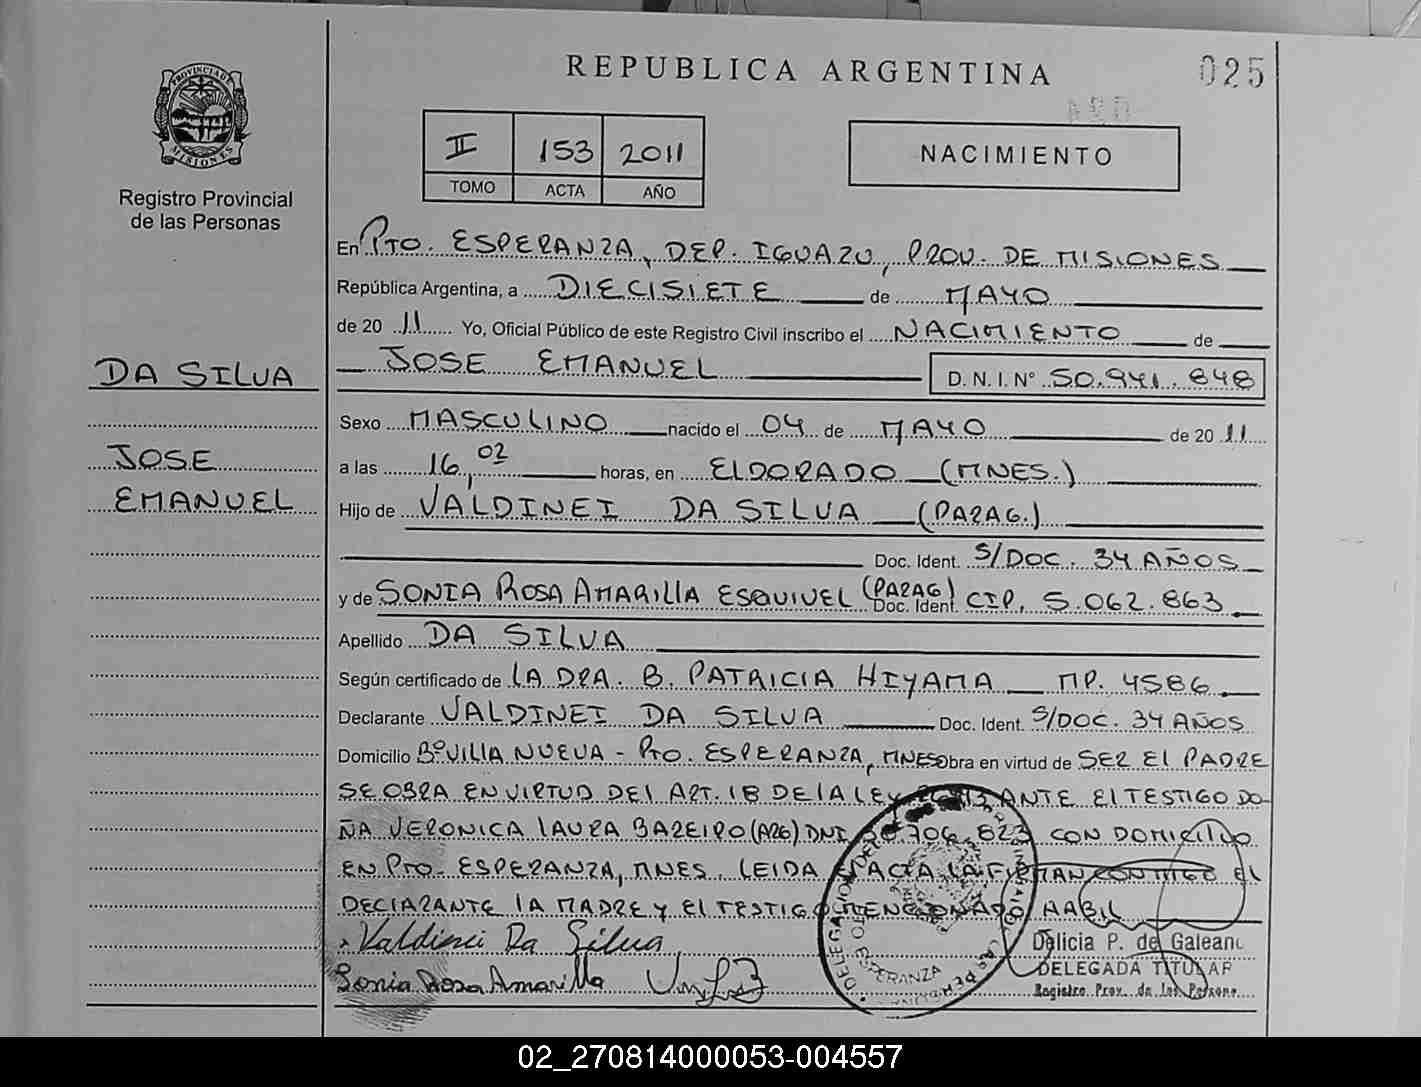 REPUBLICA ARGENTINA
025
PROVINCIA DE
MISIONES
Registro Provincial
de las Personas
II 153 2011
TOMO ACTA AÑO
NACIMIENTO
En PTO. ESPERANZA, DEP. IGUAZU, PROV. DE MISIONES
República Argentina, a DIECISIETE de MAYO
de 20 11 Yo, Oficial Público de este Registro Civil inscribo el NACIMIENTO de
JOSE EMANUEL D. N. I. N° 50.941.848
DA SILVA
JOSE
EMANUEL
Sexo MASCULINO nacido el 04 de MAYO de 20 11
a las 16,02 horas, en ELDORADO (MNES.)
Hijo de VALDINEI DA SILVA (PARAG.)
Doc. Ident. S/DOC. 34 AÑOS
y de SONIA ROSA AMARILLA ESQUIVEL (PARAG) Doc. Ident. CIP. 5.062.863
Apellido DA SILVA
Según certificado de LA DRA. B. PATRICIA HIYAMA MP. 4586
Declarante VALDINEI DA SILVA Doc. Ident. S/DOC. 34 AÑOS
Domicilio B° VILLA NUEVA - PTO. ESPERANZA, MNES obra en virtud de SER EL PADRE
SE OBRA EN VIRTUD DEL ART. 18 DE LA LEY ANTE EL TESTIGO DO-
ÑA VERONICA LAURA BAREIRO (ARG) DNI 706.823 CON DOMICILIO
EN PTO. ESPERANZA, MNES. LEIDA EL ACTA LA FIRMAN CONMIGO EL
DECLARANTE LA MADRE Y EL TESTIGO MENCIONADO HABIL
Valdinei Da Silva
Sonia Rosa Amarilla
DELEGACION
ESPERANZA
Delicia P. de Galeano
DELEGADA TITULAR
Registro Prov. de las Persona
02_270814000053-004557